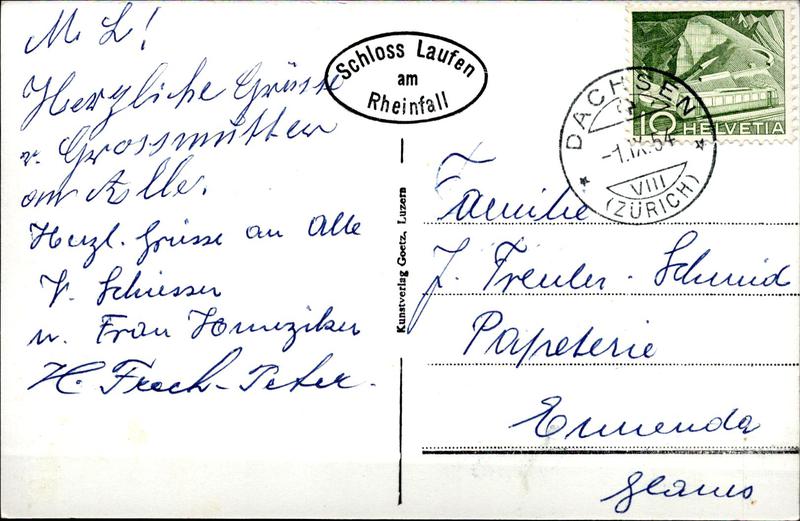 M. L!
Herzliche Grüsse
v. Grossmutter
an Alle.
Herzl. Grüsse an Alle
V. Schiesser
u. Frau Hunziker
H. Frech-Peter.
Schloss Laufen
am
Rheinfall
Kunstverlag Goetz, Luzern
10 HELVETIA
DACHSEN
-1.IX.54
VIII
(ZÜRICH)
Familie
J. Trenler-Schmid
Papeterie
Ennenda
Glarus